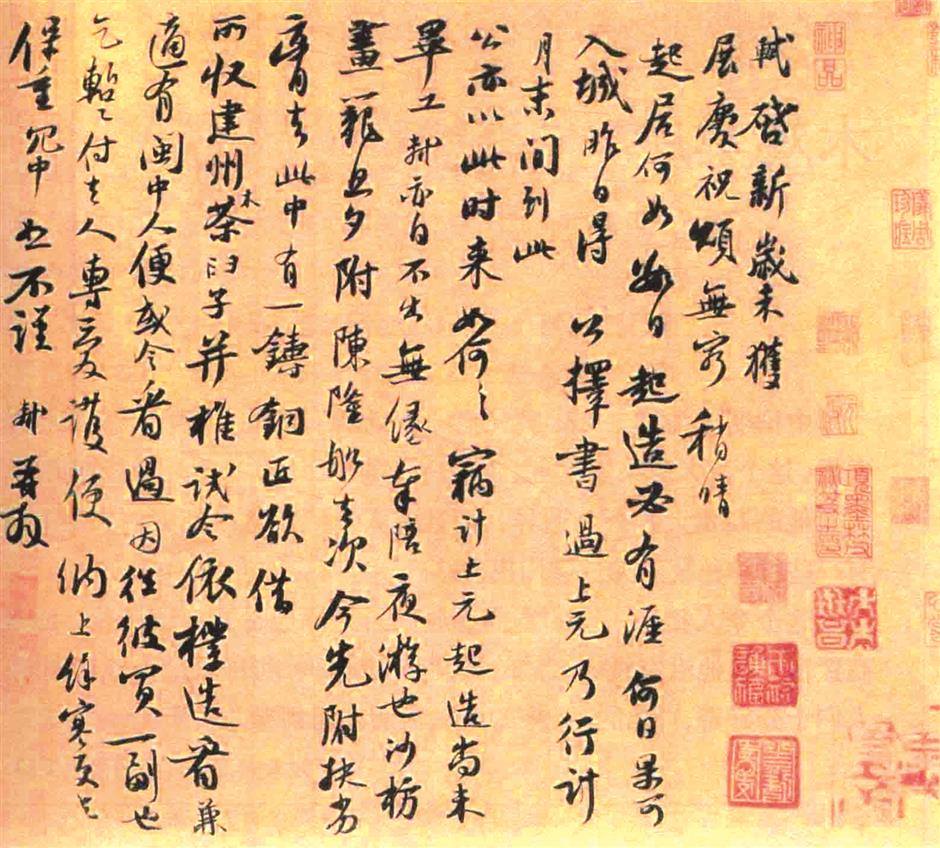 軾啓新歲未獲
展慶祝頌無窮稍晴
起居何如數日起造必有涯何日果可
入城昨日得 公擇書過上元乃行計
月末間到此
公亦以此時來如何々竊計上元起造尚未
畢工軾亦自不出無緣奉陪夜游也沙枋
畫籠旦夕附陳隆船去次今先附扶劣
膏去此中有一鑄銅匠欲借
所收建州木茶臼子并椎試令依樣造看兼
適有閩中人便或令看過因往彼買一副也
乞暫付去人專愛護便納上餘寒更乞
保重冗中恕不謹 軾再拜